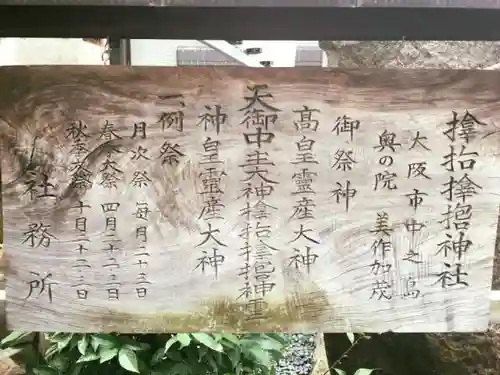 捨拾捨招神社
大阪市中之島
奥の院　美作加茂
御祭神
高皇霊産大神
天御中主大神捨拾捨招神霊
神皇霊産大神
一、例祭
月次祭　毎月二十三日
春季大祭　四月二十二・三日
秋季大祭　十月二十二・三日
社務所